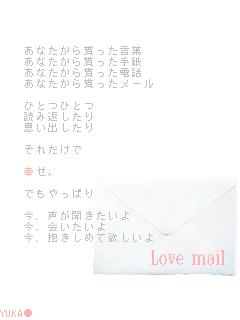 あなたから貰った言葉
あなたから貰った手紙
あなたから貰った電話
あなたから貰ったメール
ひとつひとつ
読み返したり
思い出したり
それだけで
幸せ。
でもやっぱり
今、声が聞きたいよ
今、会いたいよ
今、抱きしめて欲しいよ
Love mail
YUKA●